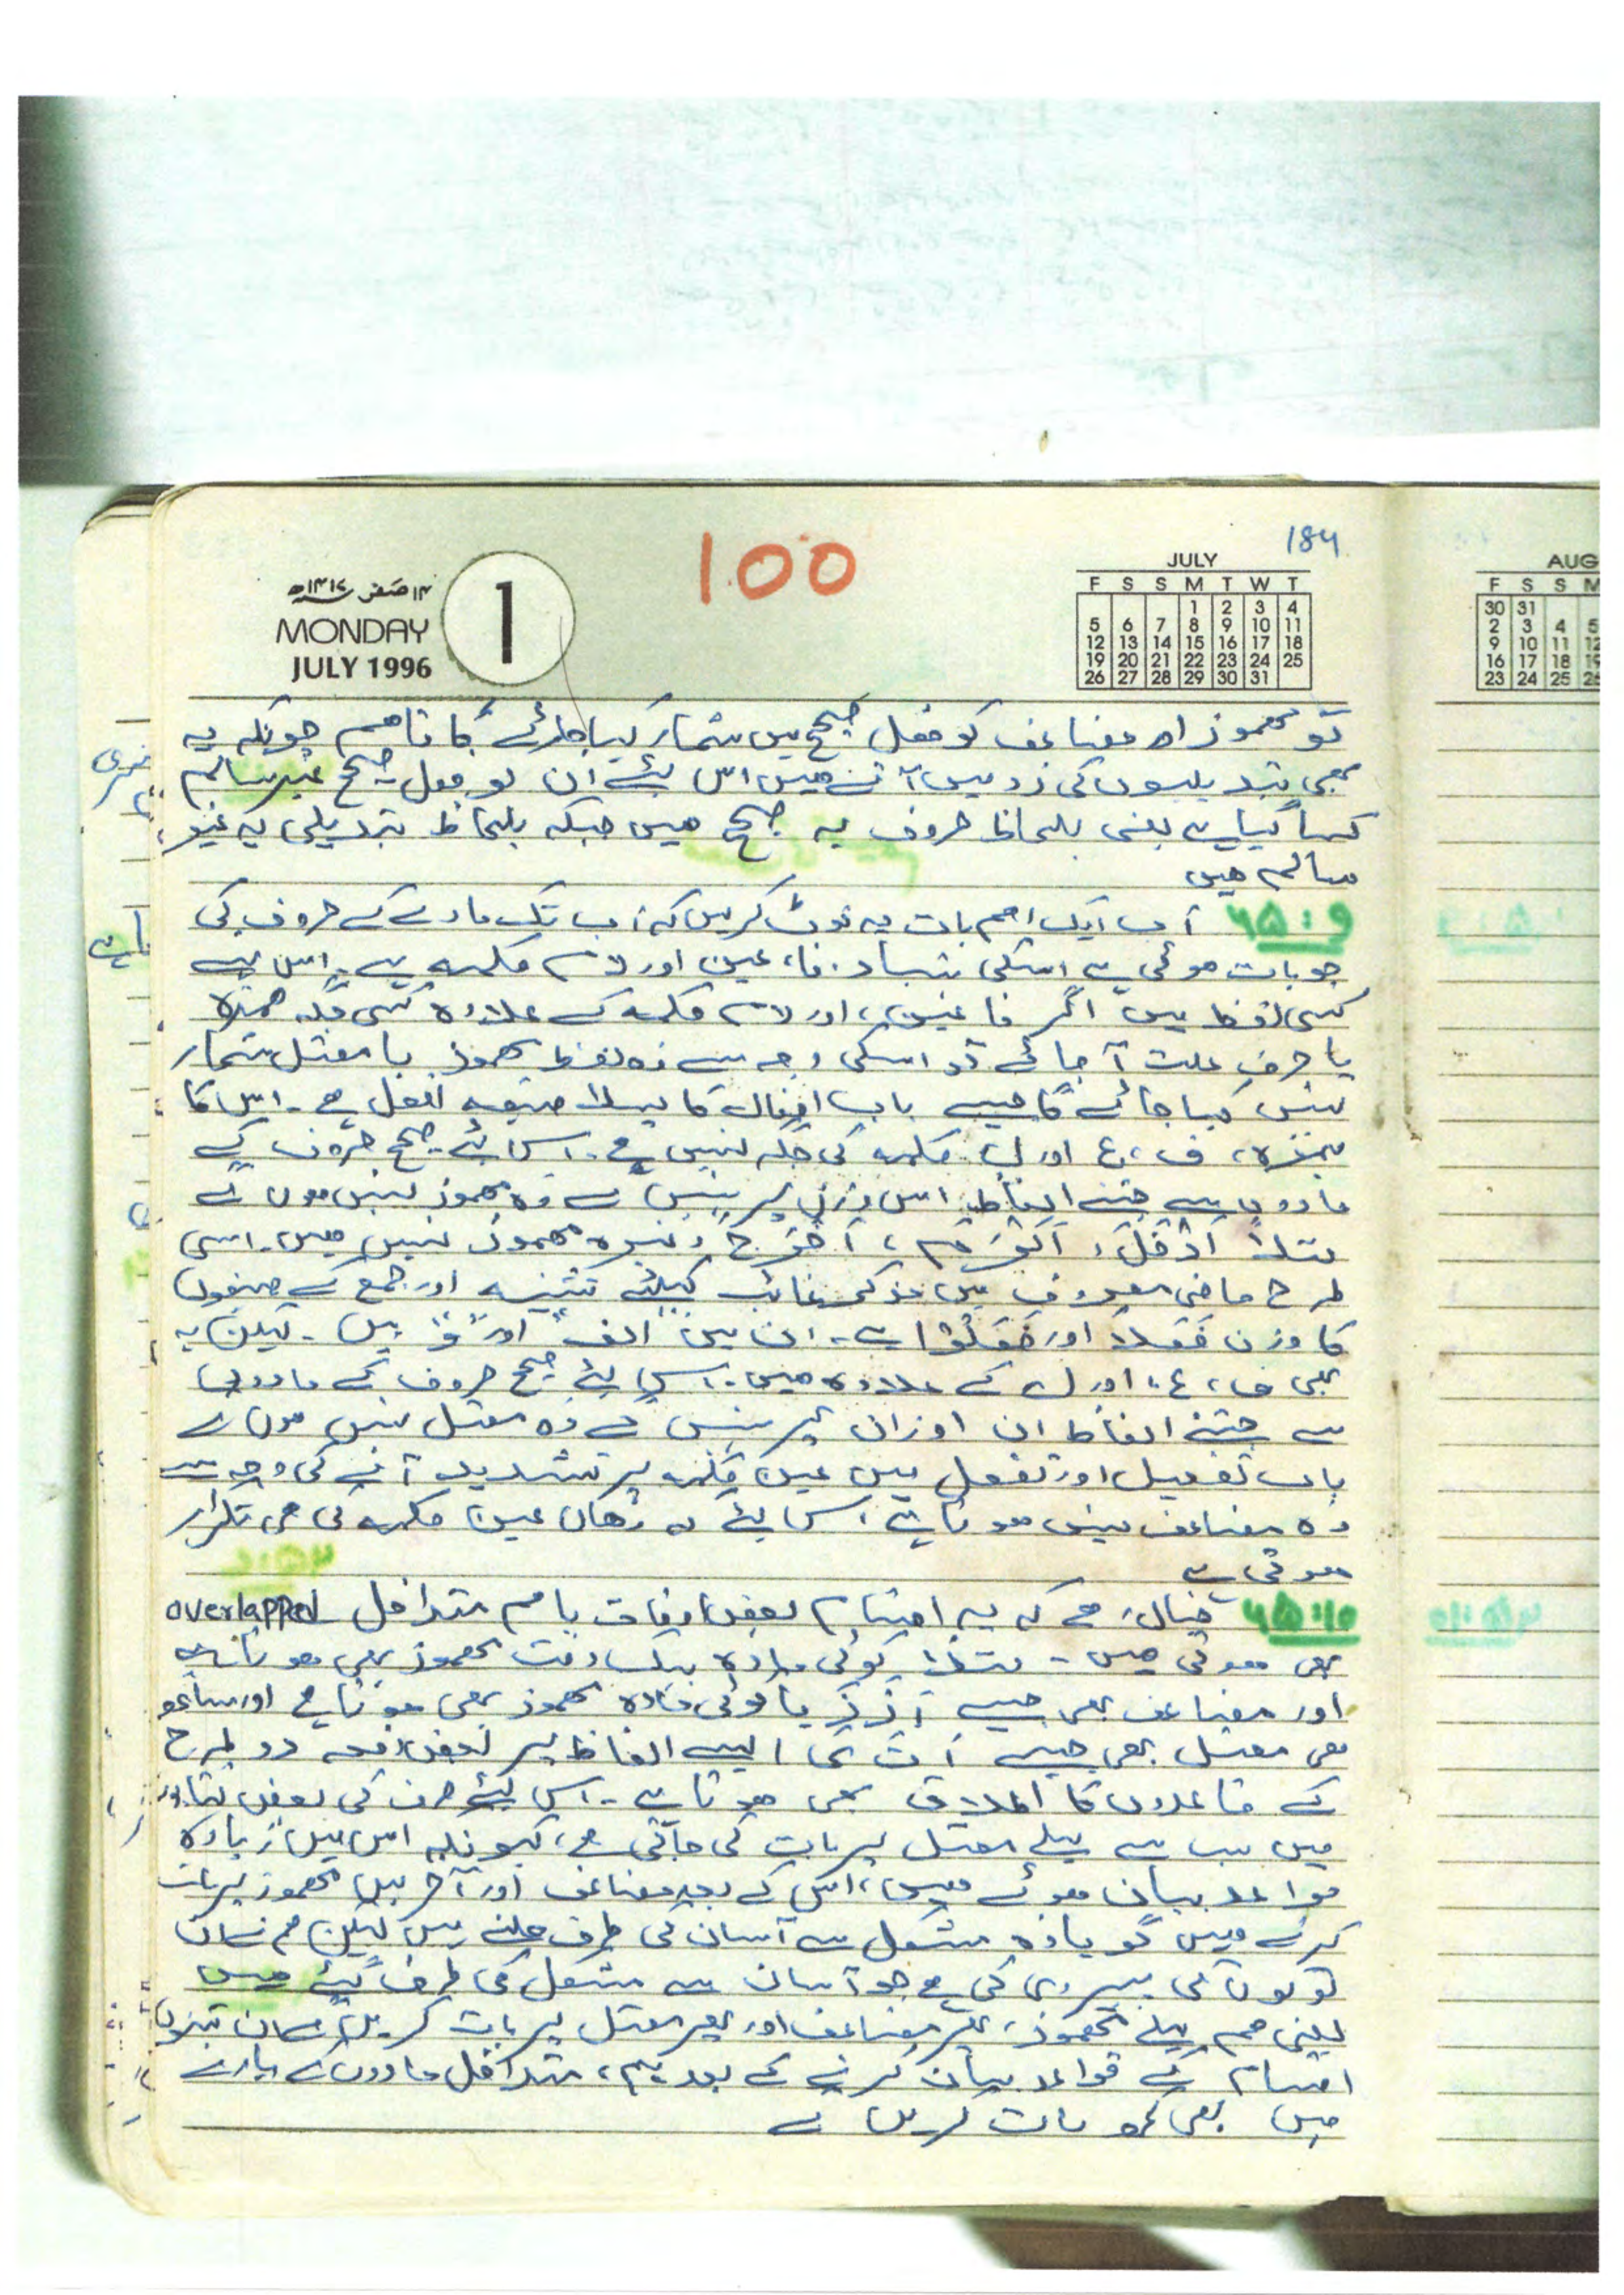 184
100
۱۴ صفر ۱۴۱۷ھ
MONDAY
JULY 1996
1
JULY
F S S M T W T
1 2 3 4
5 6 7 8 9 10 11
12 13 14 15 16 17 18
19 20 21 22 23 24 25
26 27 28 29 30 31
AUG
F S S M
30 31
2 3 4 5
9 10 11 12
16 17 18 19
23 24 25 26
تو مہموز اور مضاعف کو فعل صحیح میں شمار کیا جائے گا تاہم چونکہ یہ
بھی تبدیلیوں کی زد میں آتے ہیں اس لئے ان کو فعل صحیح غیر سالم
کہا گیا ہے یعنی بلحاظ حروف یہ صحیح ہیں جبکہ بلحاظ تبدیلی یہ غیر
سالم ہیں
۶۵:۹ اب ایک اہم بات یہ نوٹ کریں کہ اب تک مادے کے حروف کی
جو بات ہوئی ہے اسکی بنیاد، فا، عین اور لام کلمہ ہے۔ اس لیے
کسی لفظ میں اگر فا عین، اور لام کلمہ کے علاوہ کسی جگہ ہمزہ
یا حرف علت آ جائے تو اسکی وجہ سے وہ لفظ مہموز یا معتل شمار
نہیں کیا جائے گا جیسے باب افعال کا پہلا صیغہ افعل ہے۔ اس کا
ہمزہ، ف، ع اور ل کلمہ کی جگہ نہیں ہے۔ اس لئے صحیح حروف کے
مادوں سے جتنے الفاظ اس وزن پر بنیں گے وہ مہموز نہیں ہوں گے
مثلاً اَدْخَلَ، اَکْرَمَ، اَخْرَجَ وغیرہ مہموز نہیں ہیں۔ اسی
طرح ماضی معروف میں مذکر غائب کیلئے تثنیہ اور جمع کے صیغوں
کا وزن فَعَلَا اور فَعَلُوْا ہے۔ ان میں "الف" اور "و" ہیں۔ لیکن یہ
بھی ف، ع، اور ل کے علاوہ ہیں۔ اس لئے صحیح حروف کے مادوں
سے جتنے الفاظ ان اوزان پر بنیں گے وہ معتل نہیں ہوں گے
باب تفعیل اور تفعل میں عین کلمہ پر تشدید آنے کی وجہ سے
وہ مضاعف نہیں ہوتا ہے، اس لئے کہ وہاں عین کلمہ کی ہی تکرار
ہوتی ہے
۶۵:۱۰ خیال رہے کہ یہ اقسام بعض اوقات باہم متداخل overlapped
بھی ہوتی ہیں۔ مثلاً کوئی مادہ بیک وقت مہموز بھی ہوتا ہے
اور مضاعف بھی جیسے أ ز ز یا کوئی مادہ مہموز بھی ہوتا ہے اور ساتھ
ہی معتل بھی جیسے أ ت ی ایسے الفاظ پر بعض دفعہ دو طرح
کے قاعدوں کا اطلاق بھی ہوتا ہے۔ اس لئے صرف کی بعض کتابوں
میں سب سے پہلے معتل پر بات کی جاتی ہے، کیونکہ اس میں زیادہ
قواعد بیان ہوئے ہیں، اس کے بعد مضاعف اور آخر میں مہموز پر بات
کرتے ہیں گویا وہ مشکل سے آسان کی طرف چلتے ہیں لیکن ہم نے ان
لوگوں کی پیروی کی ہے جو آسان سے مشکل کی طرف گئے ہیں
یعنی ہم پہلے مہموز، پھر مضاعف اور پھر معتل پر بات کریں گے ان تینوں
اقسام کے قواعد بیان کرنے کے بعد ہم، متداخل مادوں کے بارے
میں بھی کچھ بات کریں گے